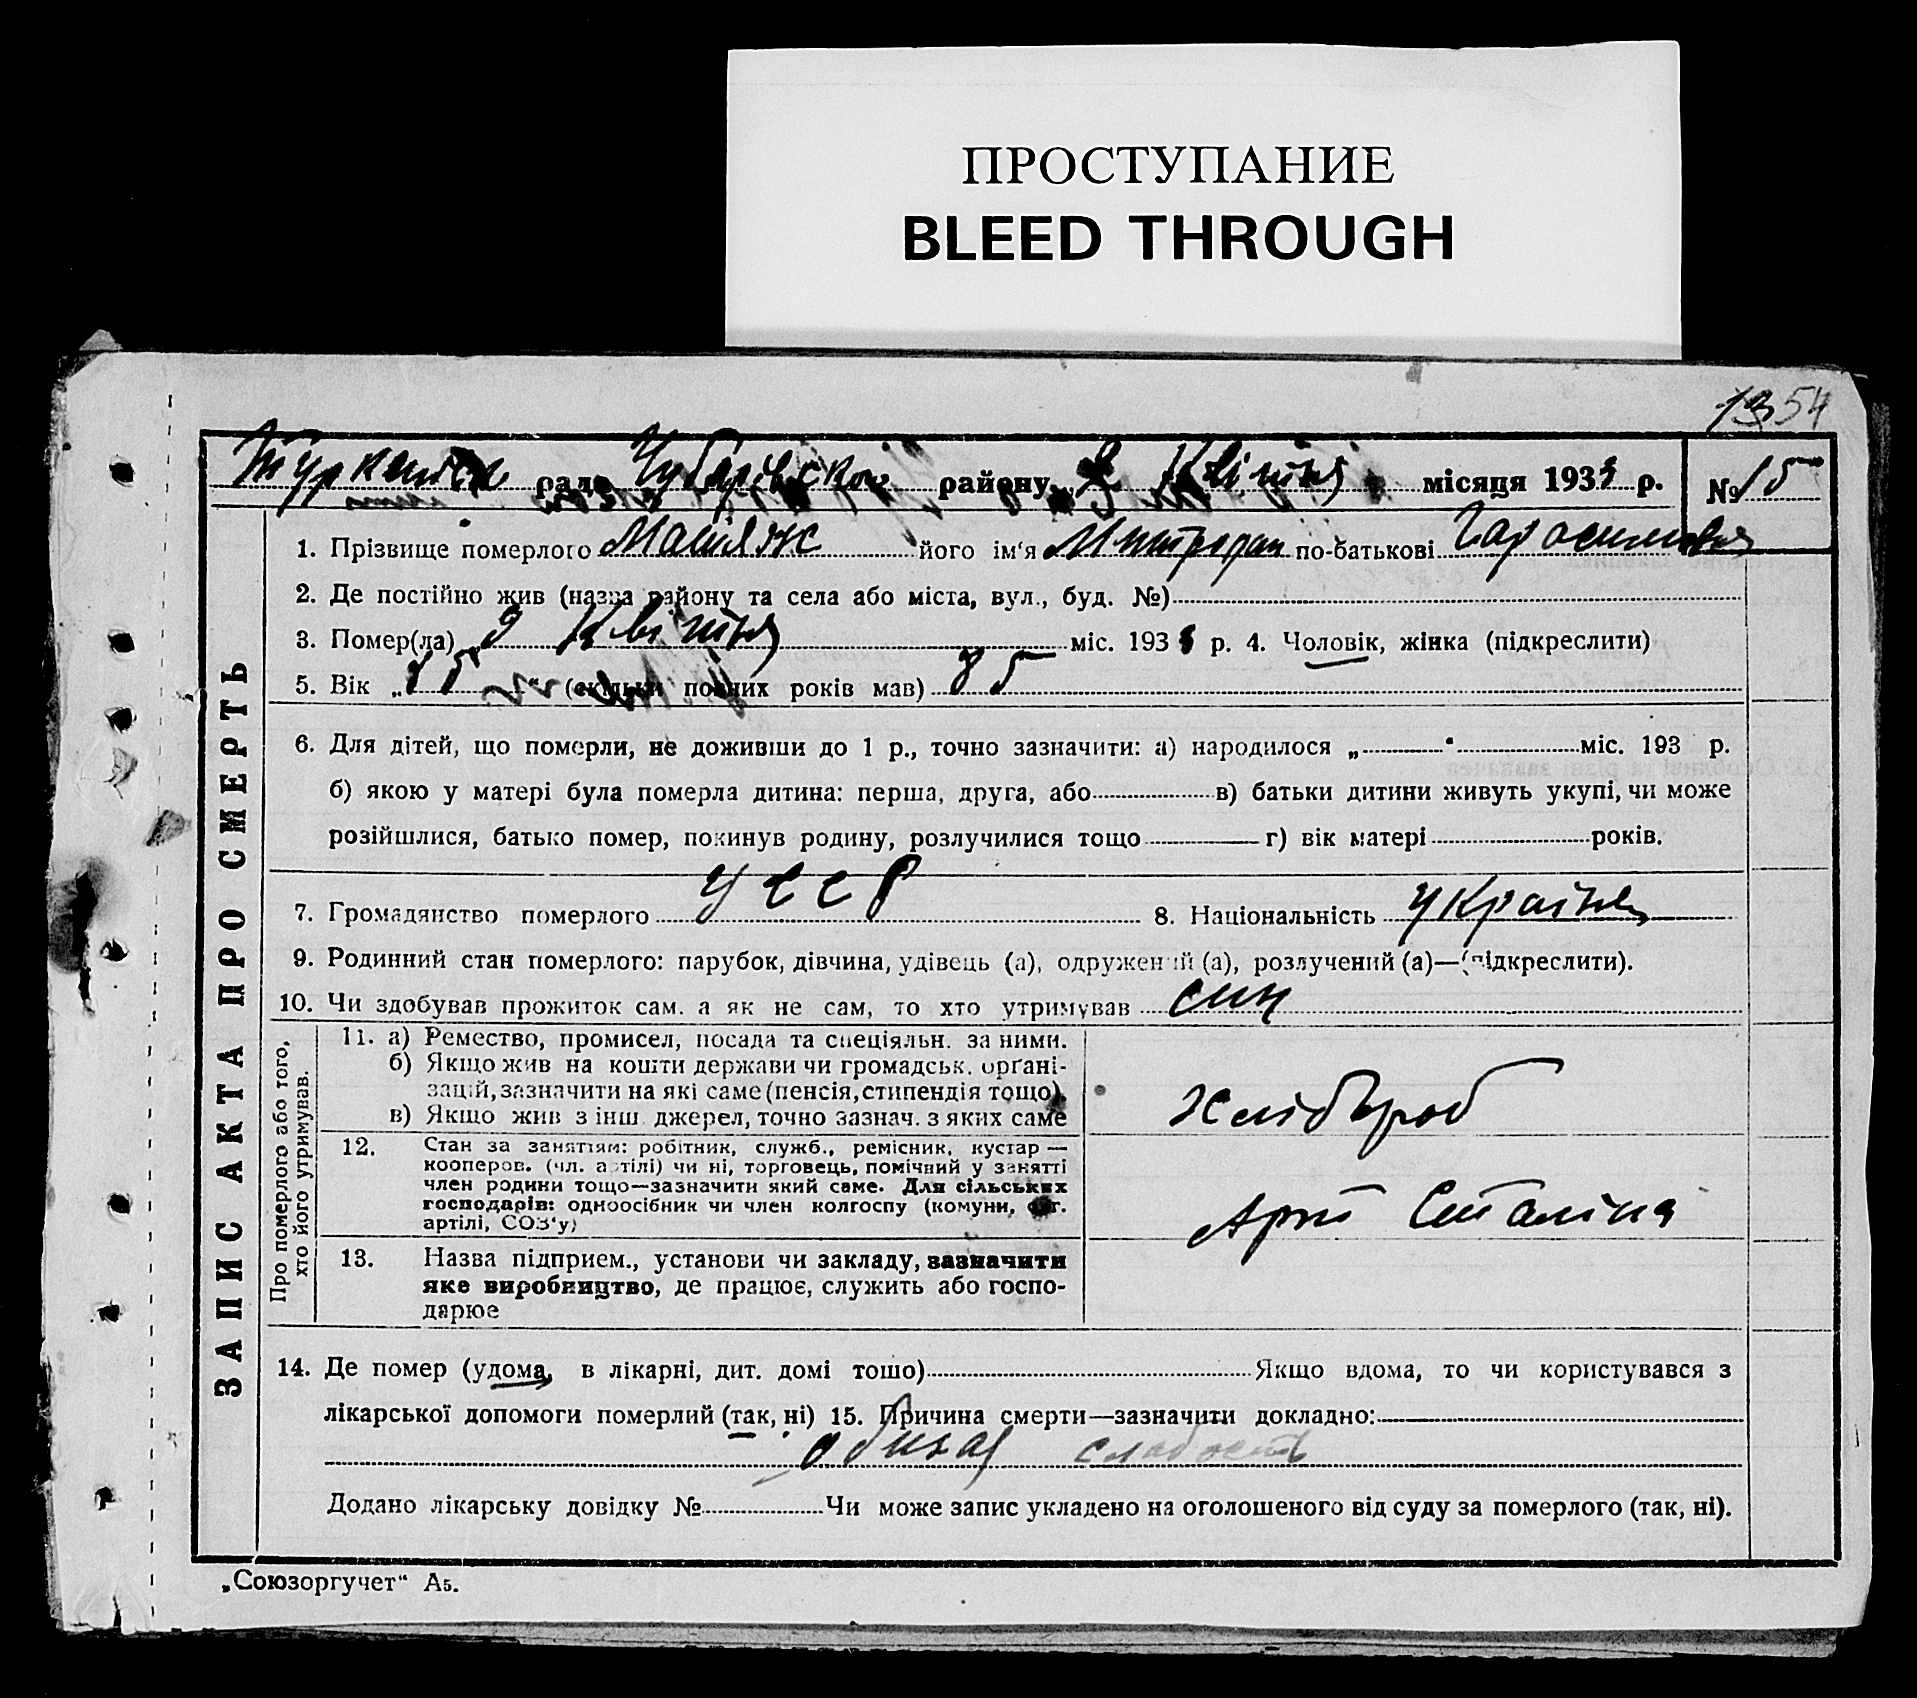 ПРОСТУПАНИЕ
BLEED THROUGH
54
рада Чубарівської району 9 Квітня місяця 1933 р. № 15
ЗАПИС АКТА ПРО СМЕРТЬ
1. Прізвище померлого його ім'я Митрофан по-батькові
2. Де постійно жив (назва району та села або міста, вул., буд. №)
3. Помер(ла) 9 Квітня міс. 1933 р. 4. Чоловік, жінка (підкреслити)
5. Вік „85“ (скільки повних років мав) 85
6. Для дітей, що померли, не доживши до 1 р., точно зазначити: а) народилося „ “ міс. 193 р.
б) якою у матері була померла дитина: перша, друга, або в) батьки дитини живуть укупі, чи може
розійшлися, батько помер, покинув родину, розлучилися тощо г) вік матері років.
7. Громадянство померлого УССР 8. Національність Українец
9. Родинний стан померлого: парубок, дівчина, удівець (а), одружений (а), розлучений (а)—(підкреслити).
10. Чи здобував прожиток сам. а як не сам, то хто утримував син
Про померлого або того,
хто його утримував.
11. а) Ремество, промисел, посада та спеціяльн. за ними.
б) Якщо жив на кошти держави чи громадськ. орґані-
зацій, зазначити на які саме (пенсія, стипендія тощо).
в) Якщо жив з інш джерел, точно зазнач. з яких саме
хлібороб
12. Стан за заняттям: робітник, служб., ремісник, кустар —
кооперов. (чл. артілі) чи ні, торговець, помічний у занятті
член родини тощо—зазначити який саме. Для сільських
господарів: одноосібник чи член колгоспу (комуни, с.-г.
артілі, СОЗ'у)
Арт Сталіна
13. Назва підприєм., установи чи закладу, зазначити
яке виробництво, де працює, служить або госпо-
дарює
14. Де помер (удома, в лікарні, дит. домі тошо) Якщо вдома, то чи користувався з
лікарської допомоги померлий (так, ні) 15. Причина смерти—зазначити докладно:
общая слабость
Додано лікарську довідку № Чи може запис укладено на оголошеного від суду за померлого (так, ні).
„Союзоргучет“ А5.